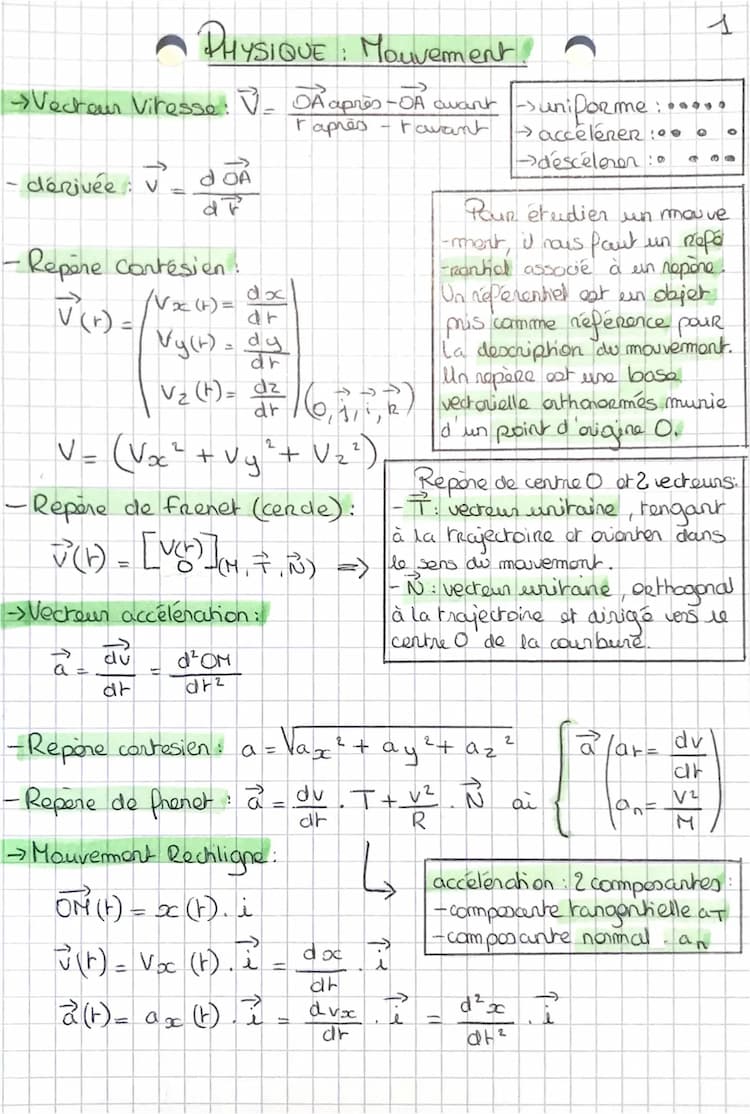 1
PHYSIQUE : Mouvement.
→Vecteur Vitesse : V⃗ = (OA⃗ après - OA⃗ avant) / (t après - t avant)
→uniforme : •••••
→accélérer : •• • •
→déscélerer : • • •••
- dérivée : v⃗ = dOA⃗ / dt⃗
Pour étudier un mouve
-ment, il nous faut un réfé
-rentiel associé à un repère.
Un référentiel est un objet
pris comme référence pour
la description du mouvement.
Un repère est une base
vectorielle orthonormés munie
d'un point d'origine O.
- Repère Cartésien :
V⃗(t) = ( Vx(t) = dx/dt
Vy(t) = dy/dt
Vz(t) = dz/dt ) (O, j⃗, i⃗, k⃗)
V = (Vx² + Vy² + Vz²)
- Repère de frenet (cercle) :
V⃗(t) = [V(t) 0] (M, T⃗, N⃗) ⇒
Repère de centre O et 2 vecteurs:
- T⃗ : vecteur unitaire, tengant
à la trajectoire et orienter dans
le sens du mouvement.
- N⃗ : vecteur unitaire, orthogonal
à la trajectoire et dirigé vers le
centre O de la courbure.
→Vecteur accélération :
a⃗ = dv⃗/dt = d²OM/dt²
- Repère cartesien : a = √(ax² + ay² + az²)
- Repère de frenet : a⃗ = dv/dt . T + v²/R . N⃗ ai { a⃗ ( at = dv/dt
an = v²/M )
→Mouvement Rectiligne :
OM⃗(t) = x(t) . i
v⃗(t) = Vx(t) . i⃗ = dx/dt . i⃗
a⃗(t) = ax(t) . i⃗ = dvx/dt . i⃗ = d²x/dt² . i⃗
accélération : 2 composantes :
- composante tangentielle aT
- composante normal . an